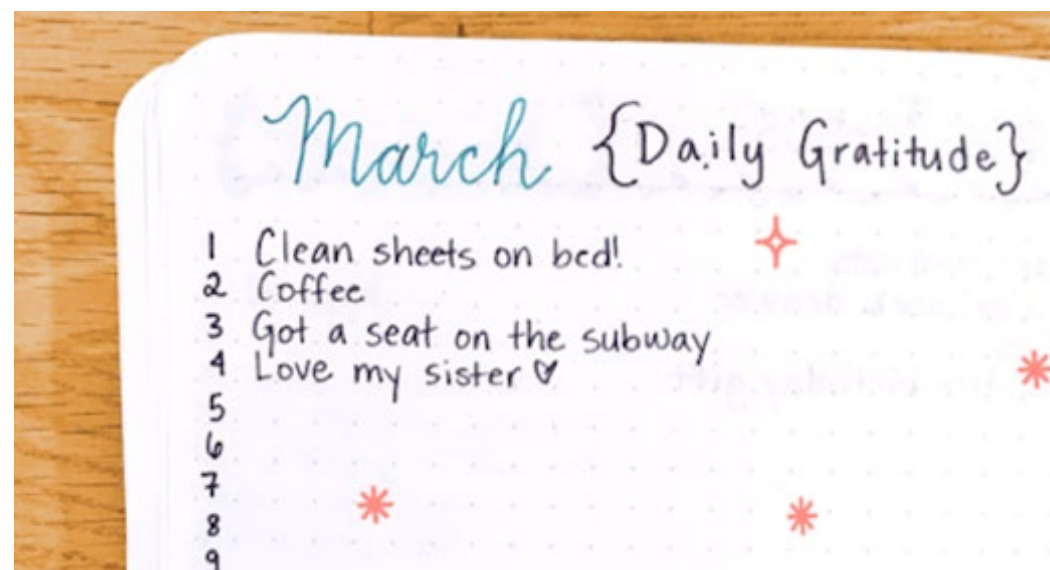 March {Daily Gratitude}
1 Clean sheets on bed!
2 Coffee
3 Got a seat on the subway
4 Love my sister ♡
5
6
7
8
9